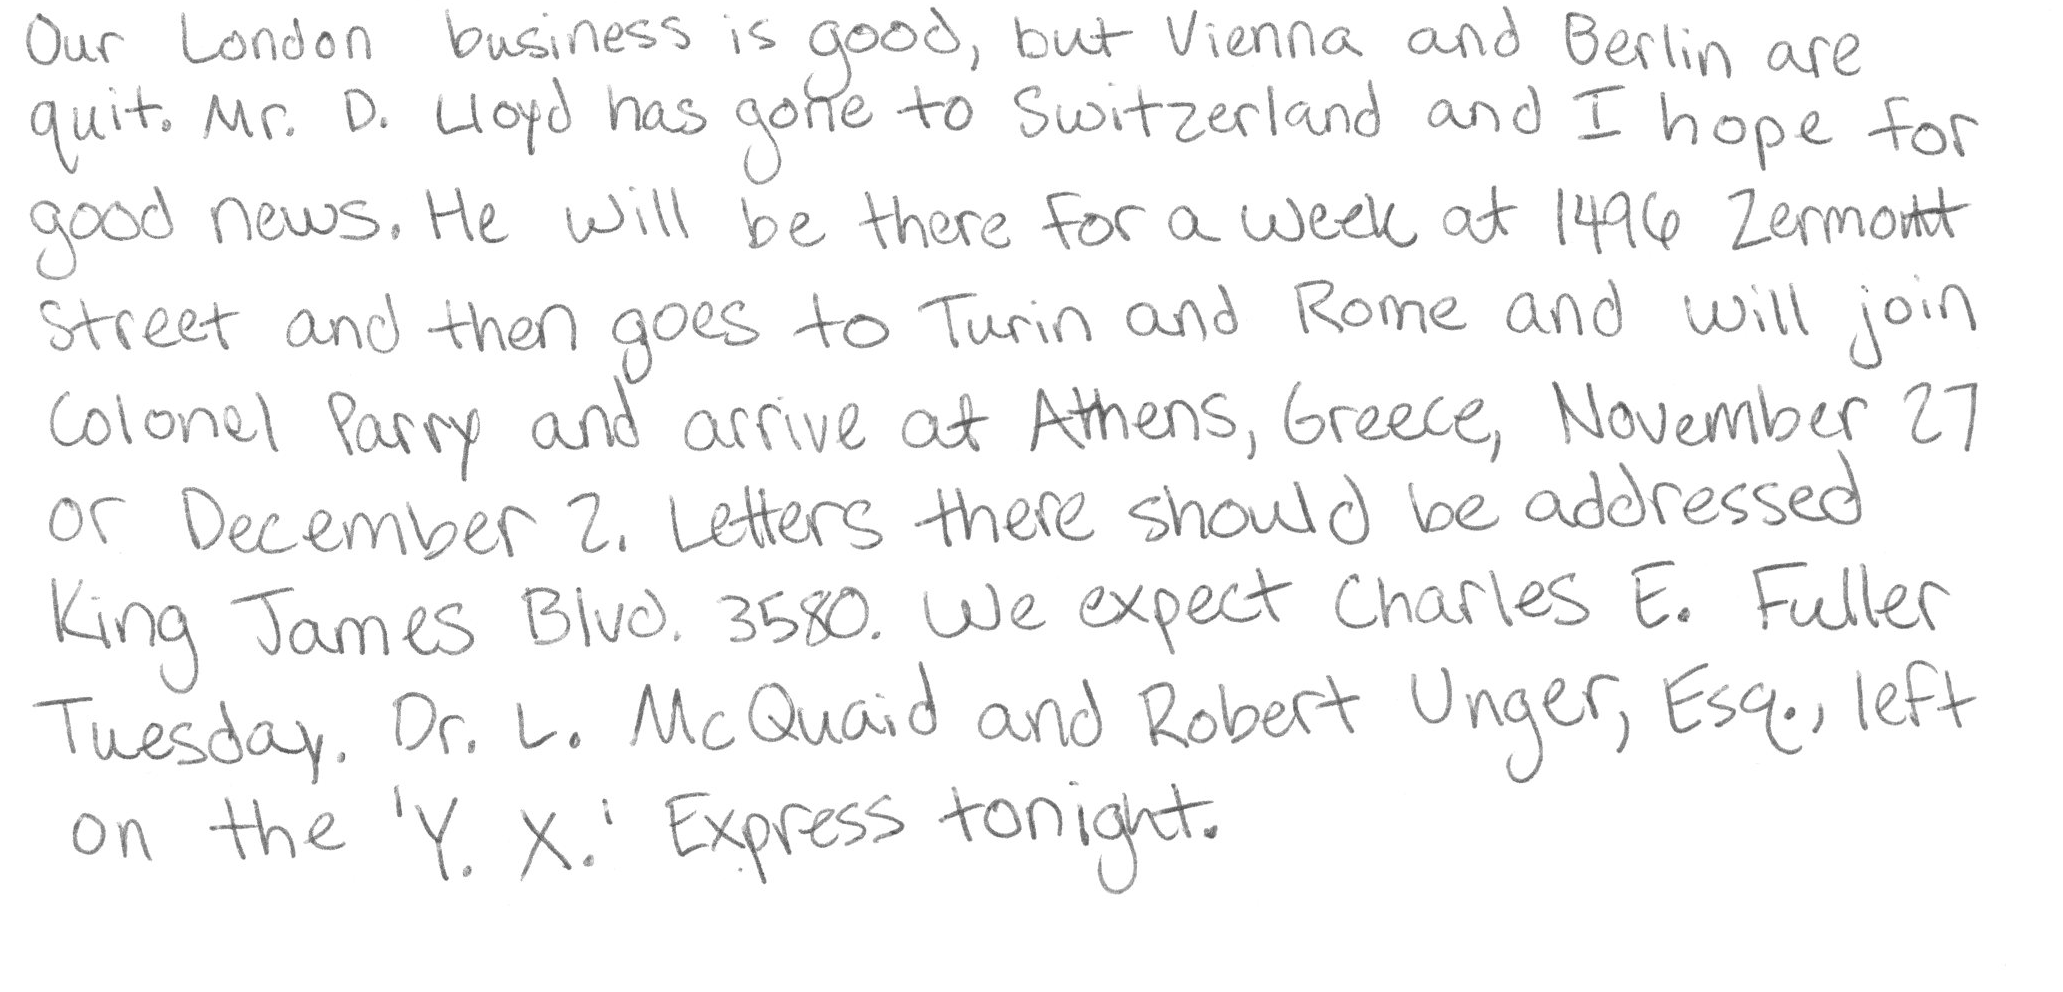 Our London business is good, but Vienna and Berlin are
quit. Mr. D. Lloyd has gone to Switzerland and I hope for
good news. He will be there for a week at 1496 Zermontt
Street and then goes to Turin and Rome and will join
Colonel Parry and arrive at Athens, Greece, November 27
or December 2. Letters there should be addressed
King James Blvd. 3580. We expect Charles E. Fuller
Tuesday. Dr. L. McQuaid and Robert Unger, Esq., left
on the 'Y. X.' Express tonight.